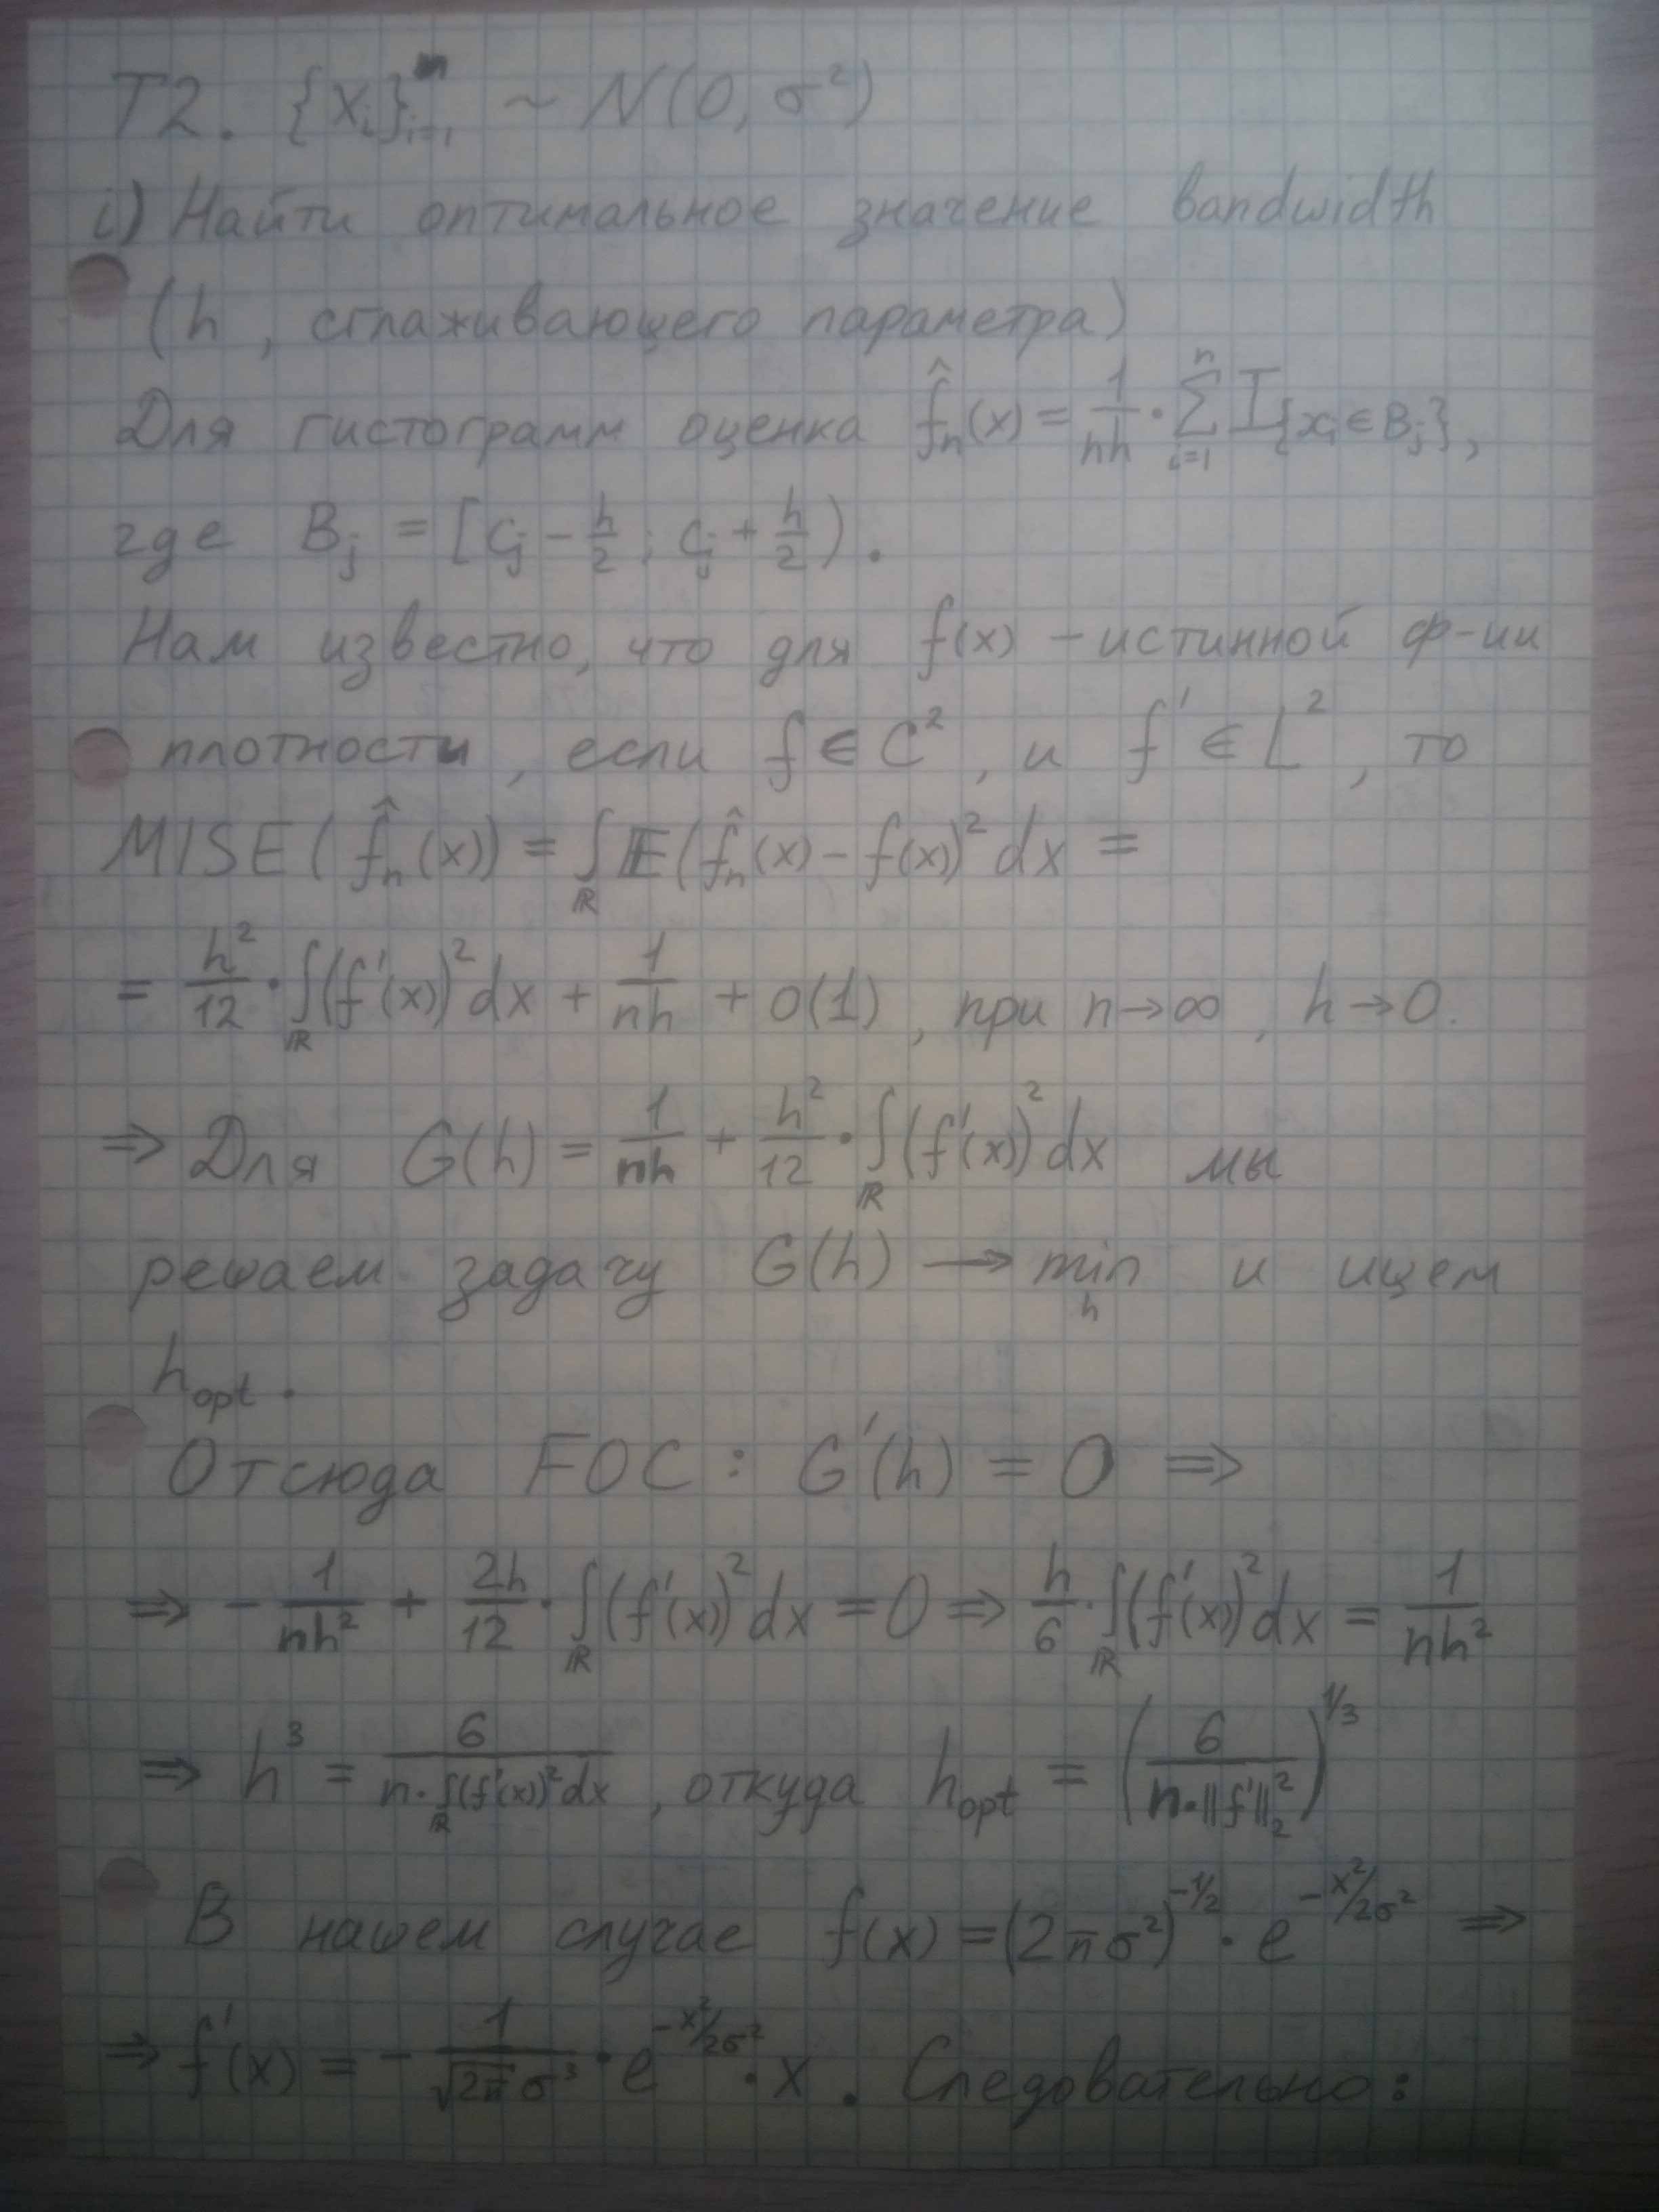 T2. {X_i}_{i=1}^n ~ N(0, σ²)
i) Найти оптимальное значение bandwidth
(h, сглаживающего параметра)
Для гистограмм оценка f̂_n(x) = 1/(nh) · Σ_{i=1}^n I_{{x_i ∈ B_j}},
где B_j = [c_j − h/2; c_j + h/2).
Нам известно, что для f(x) – истинной ф-ии
плотности, если f ∈ C², и f' ∈ L², то
MISE(f̂_n(x)) = ∫_ℝ 𝔼(f̂_n(x) − f(x))² dx =
= h²/12 · ∫_ℝ (f'(x))² dx + 1/(nh) + o(1), при n→∞, h→0.
⇒ Для G(h) = 1/(nh) + h²/12 · ∫_ℝ (f'(x))² dx мы
решаем задачу G(h) → min_h и ищем
h_opt.
Отсюда FOC: G'(h) = 0 ⇒
⇒ − 1/(nh²) + 2h/12 · ∫_ℝ (f'(x))² dx = 0 ⇒ h/6 · ∫_ℝ (f'(x))² dx = 1/(nh²)
⇒ h³ = 6/(n·∫_ℝ (f'(x))² dx), откуда h_opt = (6/(n·||f'||₂²))^{1/3}
В нашем случае f(x) = (2πσ²)^{−1/2} · e^{−x²/2σ²} ⇒
⇒ f'(x) = − 1/(√2π σ³) · e^{−x²/2σ²} · x. Следовательно: